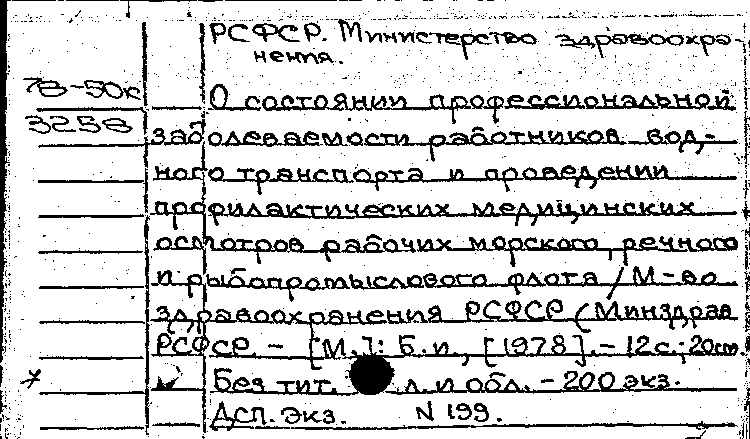 РСФСР. Министерство здравоохра-
нения.
78-50к
О состоянии профессиональной
3258
заболеваемости работников вод-
ного транспорта и проведении
профилактических медицинских
осмотров рабочих морского, речного
и рыбопромыслового флота / М-во
здравоохранения РСФСР (Минздрав
РСФСР. - [М.]: Б.и., [1978]. - 12 с.; 20 см.
Без тит. л. и обл. - 200 экз.
Дсп. Экз. N 199.